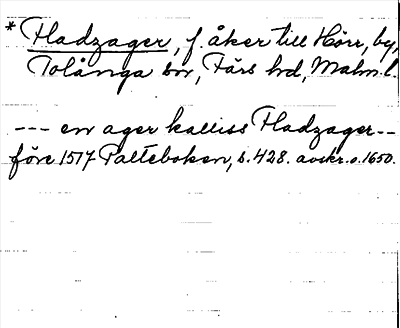 * Fladzager, f. åker till Hörr, by,
Tolånga sn, Färs hd, Malm. l.
--- en ager kalliss Fladzager --
före 1517 Palteboken, s. 428. avskr. o. 1650.